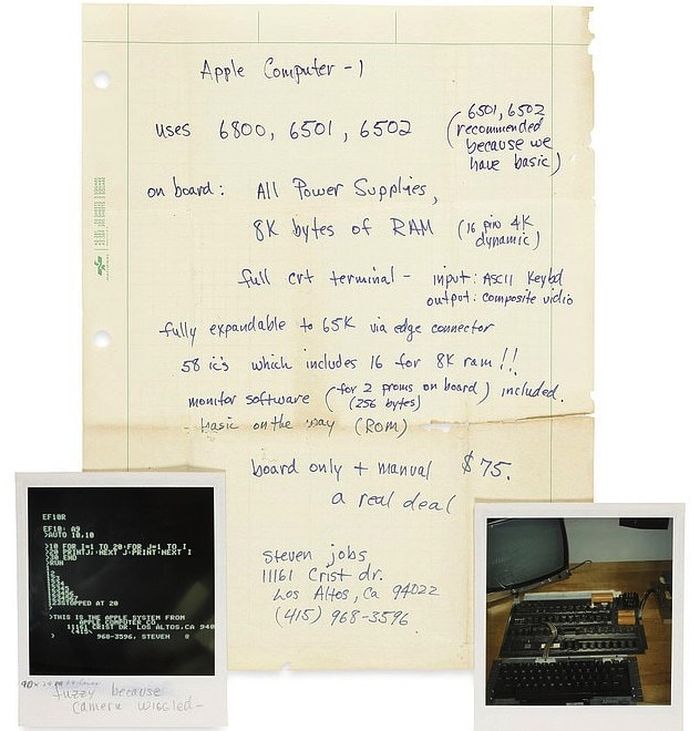 Apple Computer - 1
uses 6800, 6501, 6502 (6501, 6502
recommended
because we
have basic)
on board: All Power Supplies,
8K bytes of RAM (16 pin 4K
dynamic)
full crt terminal - input: ASCII Keybd
output: composite vidio
fully expandable to 65K via edge connector
58 ic's which includes 16 for 8K ram!!
monitor software (for 2 proms on board) included.
(256 bytes)
- basic on the way (ROM)
board only + manual $75.
a real deal
steven jobs
11161 Crist dr.
Los Altos, Ca 94022
(415) 968-3596
EF10R
EF10: A9
>AUTO 10,10
>10 FOR I=1 TO 20:FOR J=1 TO I
>20 PRINTJ;:NEXT J:PRINT:NEXT I
>30 END
>RUN
STOPPED AT 20
>THIS IS THE APPLE SYSTEM FROM
APPLE COMPUTER CO
11161 CRIST DR. LOS ALTOS,CA 940
(415)
> 968-3596, STEVEN @
fuzzy because
camera wiggled-